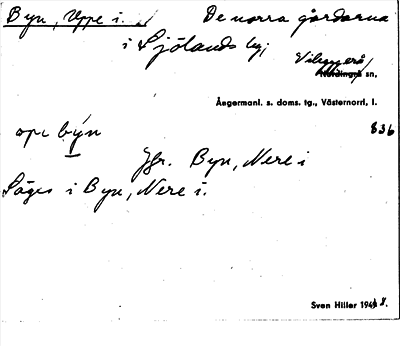 Byn, Uppe i. De norra gårdarna
i Sjölands by;
Vibyggerå
Nordingrå sn,
Ångermanl. s. doms. tg., Västernorrl. l.
ope býn 836
Jfr. Byn, Nere i
Säges i Byn, Nere i.
Sven Hiller 1948.